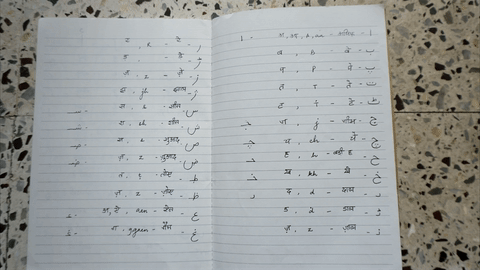 अ, आ, a, aa - अलिफ - ا
ब, b - बे - ب
प, p - पे - پ
त, t - ते - ت
ट, t - टे - ٹ
ज, j - जीम - ج
च, ch - चे - چ
ह, h - बड़ी हे - ح
ख़, kh - ख़े - خ
द, d - दाल - د
ड, d - डाल - ڈ
ज़, z - ज़ाल - ذ
र, r - रे - ر
ड़ - ड़े - ڑ
ज़, z - ज़े - ز
jh - ژ
स, s - सीन - س
श, sh - शीन - ش
स, s - सुआद - ص
ज़, z - ज़ुआद - ض
त, t - तोए - ط
ज़, z - ज़ोए - ظ
अ, ऐ, aen - ऐन - ع
ग, ggaen - ग़ैन - غ